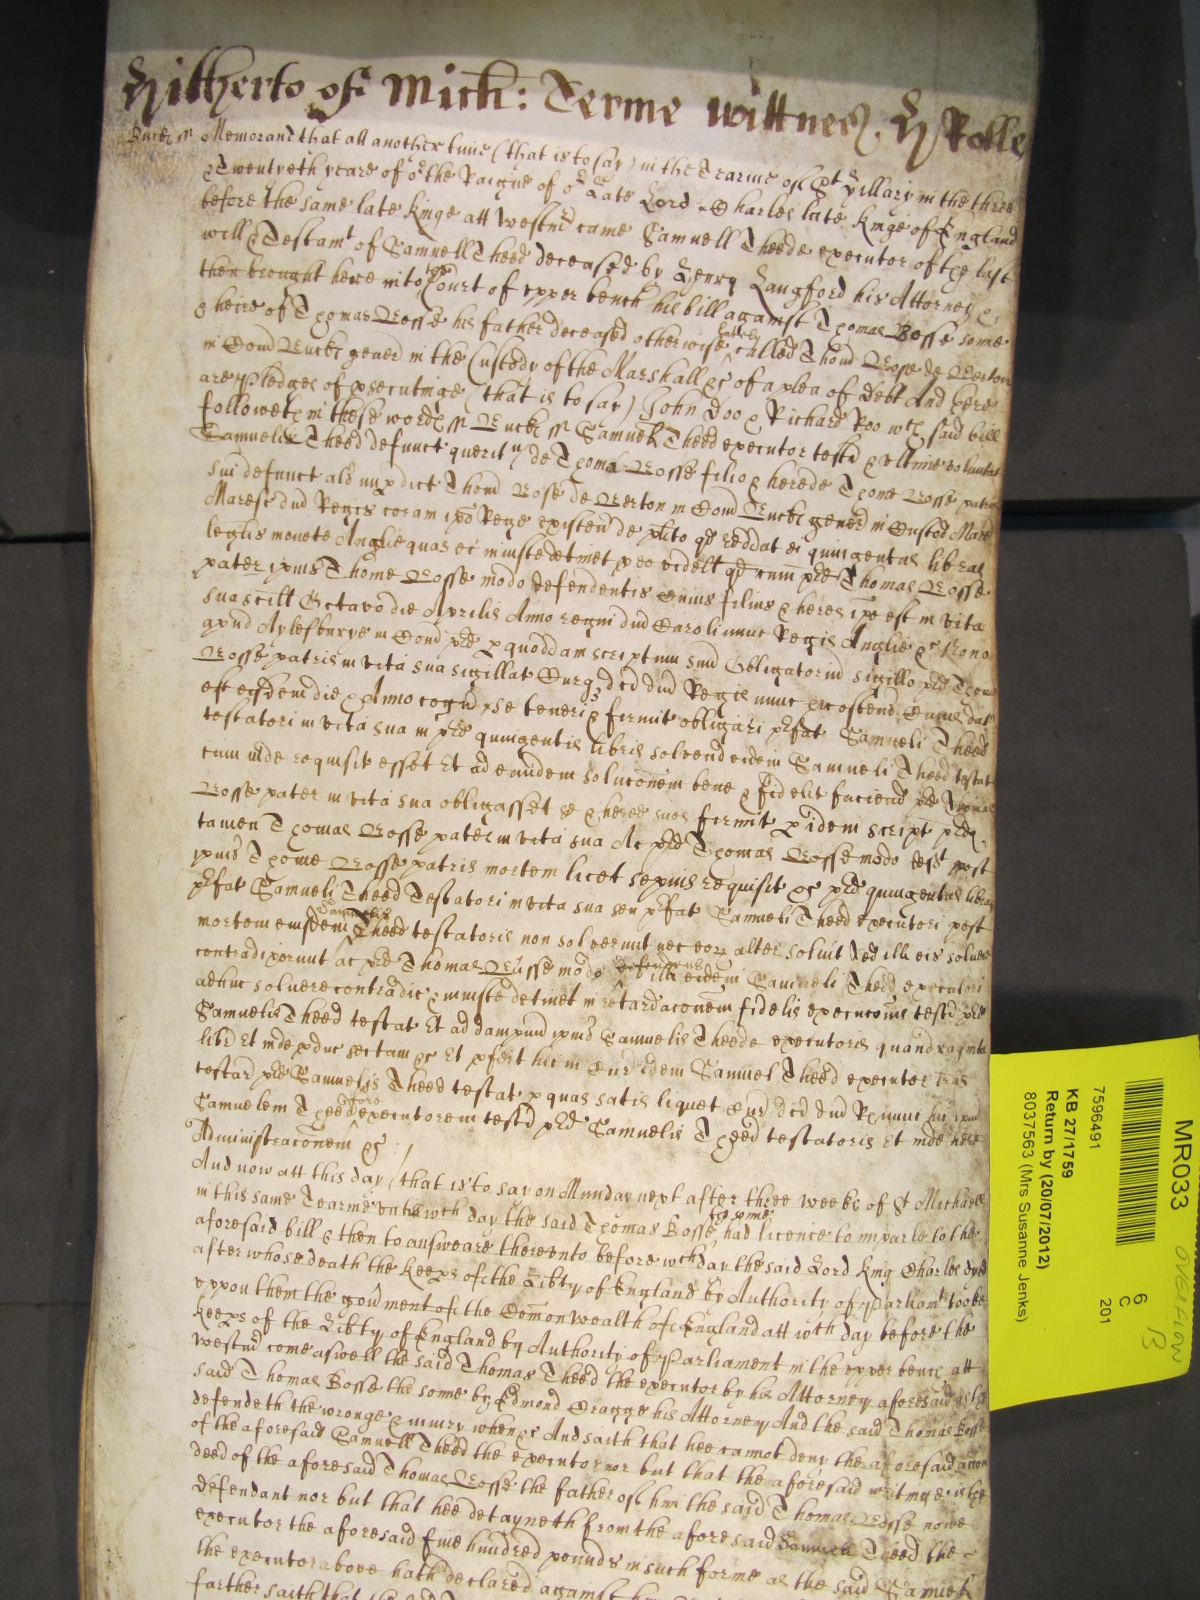 Hitherto of Mich: Terme Wittnes H Rolle
Buck ss Memorand that all another time (that is to say) in the Tearme of St Hillary in the three
& Twentyeth yeare of the Raigne of or Late Lord Charles late Kinge of England
before the same late Kinge att Westmr came Samuell Theede executor of the last
will & Testamt of Samuell Theed deceased by Henry Langford his Attorney &
then brought here into the Court of upper bench his bill against Thomas Bosse sonne
& heire of Thomas Bosse his father deceased otherwise lately called Thom Bosse de
in Com Buck gener in the Custody of the Marshall &c of a plea of debt And here
are Pledges of psecutinge (that is to say) John Doo & Richard Roo wch said bill
followeth in these words ss Buck ss Samuel Theed executor test & ultime voluntat
Samuelis Theed defunct querit de Thoma Bosse filio & herede Thome Bosse patris
sui defunct als nup dict Thom Bosse de in Com Buck gener in Custod Mar
Maresc dni Regis coram ipo Rege existen de plito qd reddat ei quingentas libras
legalis monete Anglie quas ei iniuste detinet p eo videlt qd cum pred Thomas Bosse
pater ipius Thome Bosse modo defendentis cuius filius & heres ipe est in vita
sua scilt Octavo die Aprilis Anno regni dni Caroli nunc Regis Anglie &c Nono
apud Aylesburye in Com pred p quoddam scriptum suu Obligatoriu sigillo pred Thome
Bosse patris in vita sua sigillat Curq dcd dni Regis nunc hic ostens Cuius dat
est eisdem die & Anno cogn se teneri & firmit obligari pfat Samueli Theed
testatori in vita sua in pred quingentis libris solvend eidem Samueli Theed testat
cum inde requisit esset Et ad eandem soluconem bene & fidelit faciend pred Thomas
Bosse pater in vita sua obligasset se & hered suos firmit p idem script pred
tamen Thomas Bosse pater in vita sua Ac pred Thomas Bosse modo post
ipius Thome Bosse patris mortem licet sepius requisit &c pred quingentas libras
pfat Samueli Theed Testatori in vita sua seu pfat Samueli Theed executori post
mortem eiusdem Samuelis Theed testatoris non solverunt nec eor alter soluit sed illa eis solvere
contradixerunt ac pred Thomas Bosse modo defendens illa eidem Samueli Theed executori
adhuc solvere contradic & iniuste detinet in retardaconem fidelis execucois test pred
Samuelis Theed testat Et ad dampnu ipius Samuelis Theede executoris quandraginta
libr Et inde pduc sectam &c Et pfert hic in Cur idem Samuel Theed executor lras
testar pred Samuelis Theed testat p quas satis liquet Cur dcd dni R nunc hic ipum
Samuelem Theed fore executorem test pred Samuelis Theed testatoris Et inde here
Administraconem &c
And now att this day (that is to say on Munday next after three weeks of St Michaell
in this same Tearme untill wch day the said Thomas Bosse the sonne had licence to imparle to the
aforesaid bill & then to answeare thereunto before wch day the said Lord King Charles dyed
after whose death the Keeps of the Libty of England by Authority of Parliamt tooke
uppon them the govment of the Comon Wealth of England att wch day before the
Keeps of the Libty of England by Authority of Parliament in the upper bench att
Westmr come aswell the said Thomas Theed the executor by his Attorney aforesaid as the
said Thomas Bosse the sonne by Edmond Cragge his Attorney And the said Thomas Bosse
defendeth the wronge & iniury when &c And saith that hee cannot deny the aforesaid accon
of the aforesaid Samuell Theed the executor nor but that the aforesaid writinge is the
deed of the aforesaid Thomas Bosse the father of him the said Thomas Bosse nowe
defendant nor but that hee detayneth from the aforesaid Samuell Theed the
executor the aforesaid five hundred pounds in such forme as the said Samuell
the executor above hath declared against him
farther saith that
MR033
OVERFLOW
13
6
C
201
7596491
KB 27/1759
Return by (20/07/2012)
8037563 (Mrs Susanne Jenks)